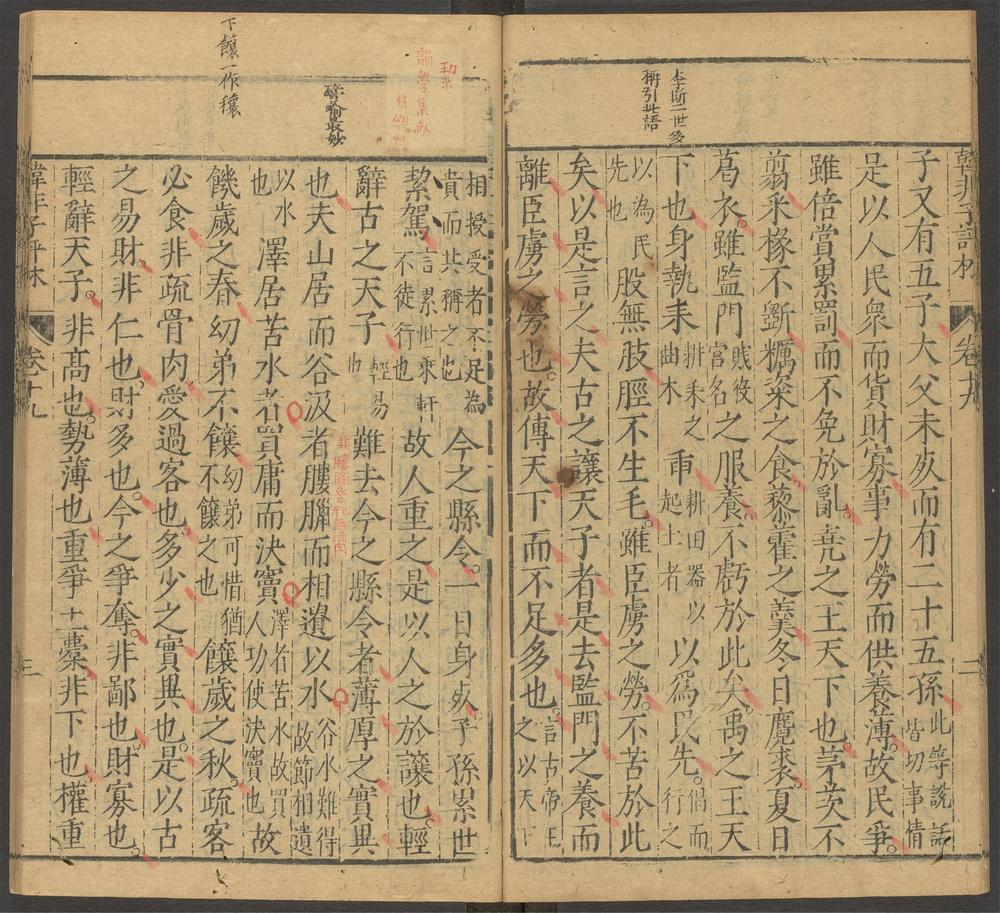 李斯二世多
稱引此語
韓非子評林　卷十九　二
子又有五子大父未死而有二十五孫此等說話皆切事情
是以人民衆而貨財寡事力勞而供養薄故民爭。
雖倍賞累罰而不免於亂。堯之王天下也。茅茨不
翦采椽不斲糲粢之食藜藿之羹冬日麑裘。夏日
葛衣。雖監門賤役官名之服養。不虧於此矣。禹之王天
下也身執耒耕耒之曲木臿耕田器以起土者以爲民先。倡而行之
以為民先也股無胈脛不生毛。雖臣虜之勞。不苦於此
矣以是言之夫古之讓天子者是去監門之養而
離臣虜之勞也。故傳天下而不足多也。言古帝王之以天下
譬喻最妙
下饟一作穰
相授受者不足為貴而共稱之也今之縣令。一日身死。子孫累世
絜駕言累世乘軒不徒行也故人重之是以人之於讓也。輕
辭古之天子輕易也難去今之縣令者薄厚之實異
也夫山居而谷汲者膢臘而相遺以水谷水難得故節相遺
以水也澤居苦水者買庸而決竇澤者苦水故買人功使決竇也故
饑歲之春幼弟不饟幼弟可惜猶不饟之也饟歲之秋。疏客
必食非疏骨肉愛過客也。多少之實異也。是以古
之易財。非仁也。財多也。今之爭奪。非鄙也。財寡也。
輕辭天子。非高也。勢薄也重爭士橐非下也權重
韓非子評林　卷十九　三